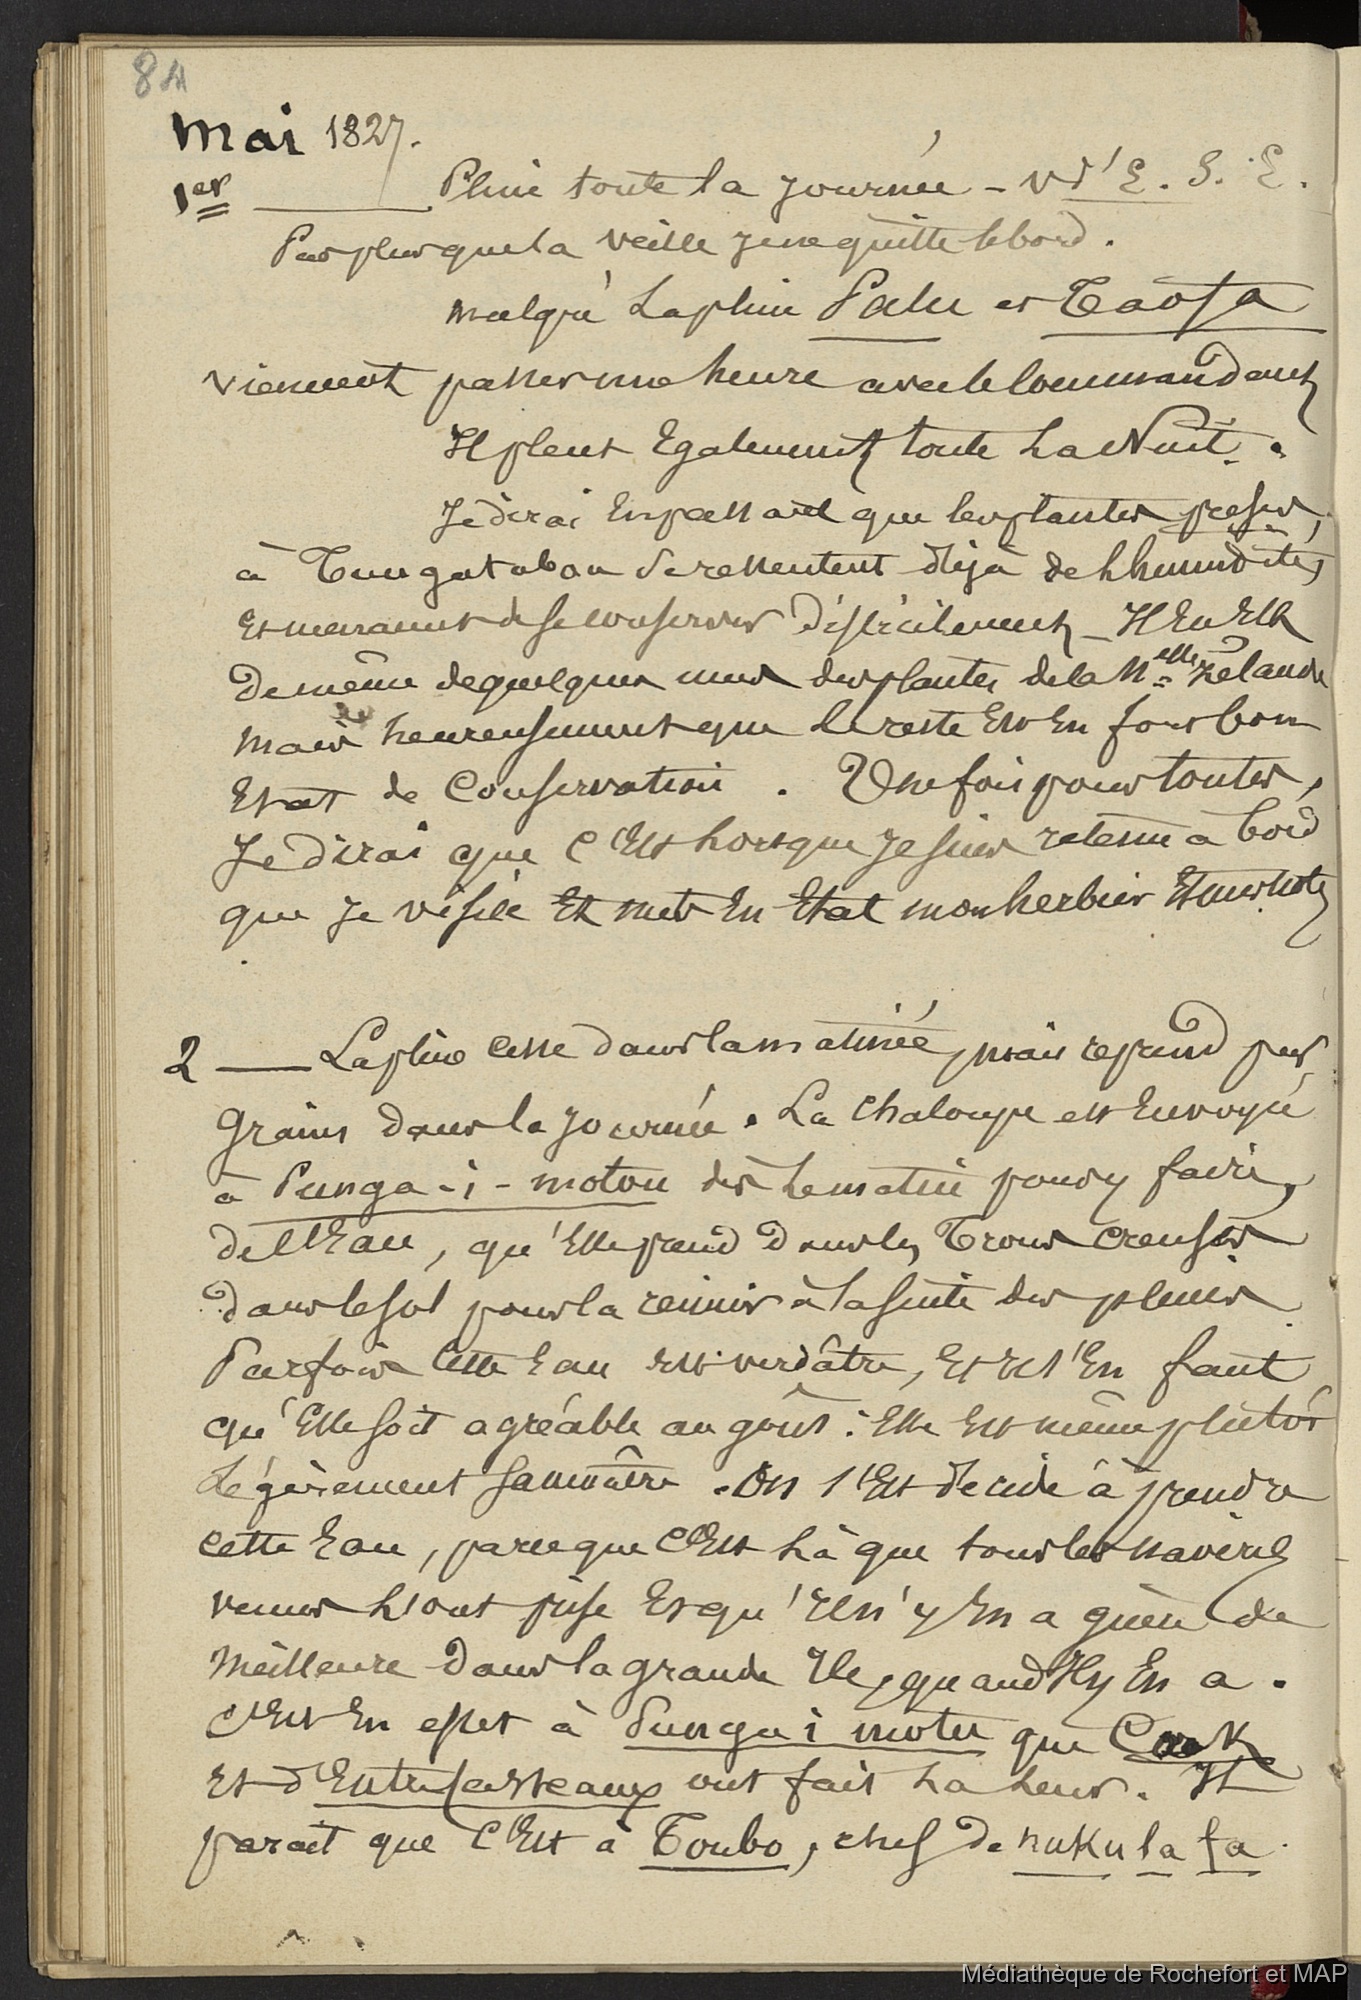 84
Mai 1827.
1er ____ Pluie toute la journée - V d'E. S. E.
Pas plus que la veille je ne quitte le bord.
Malgré la pluie Palu et Taofa
viennent passer une heure avec le Commandant
Il pleut Egalement toute la Nuit.
Je dirai En passant que les plantes prises,
à Tungatabou se ressentent déjà de l'humidité,
Et menacent de se conserver difficilement - Il En Est
de même de quelques unes des plantes de la Nelle Zélande
Mais heureusement que le reste Est En fort bon
Etat de Conservation. Une fois pour toutes,
Je dirai que C'Est lorsque je suis retenu à bord
que je visite Et mets En Etat mon herbier Et mes notes
2 ____ La pluie cesse dans la matinée, mais reprend par
grains dans la journée. La chaloupe est Envoyée
à Panga-i-motou dès le matin pour y faire,
de l'Eau, qu'Elle prend dans les Trous creusés
dans le sol pour la réunir à la suite des pluies
Parfois cette Eau est verdâtre, Et il s'En faut
qu'Elle soit agréable au goût: Elle Est même plutôt
légèrement saumâtre. On s'Est décidé à prendre
cette Eau, parceque C'Est là que tous les navires
venus l'ont prise Et qu'il n'y En a guère de
Meilleure dans la grande Ile, quand Il y En a.
C'Est En effet à Panga i motu que Cook
Et d'Entrecasteaux ont fait la leur. Il
parait que C'Est à Toubo, chef de nukulafa
Médiathèque de Rochefort et MAP